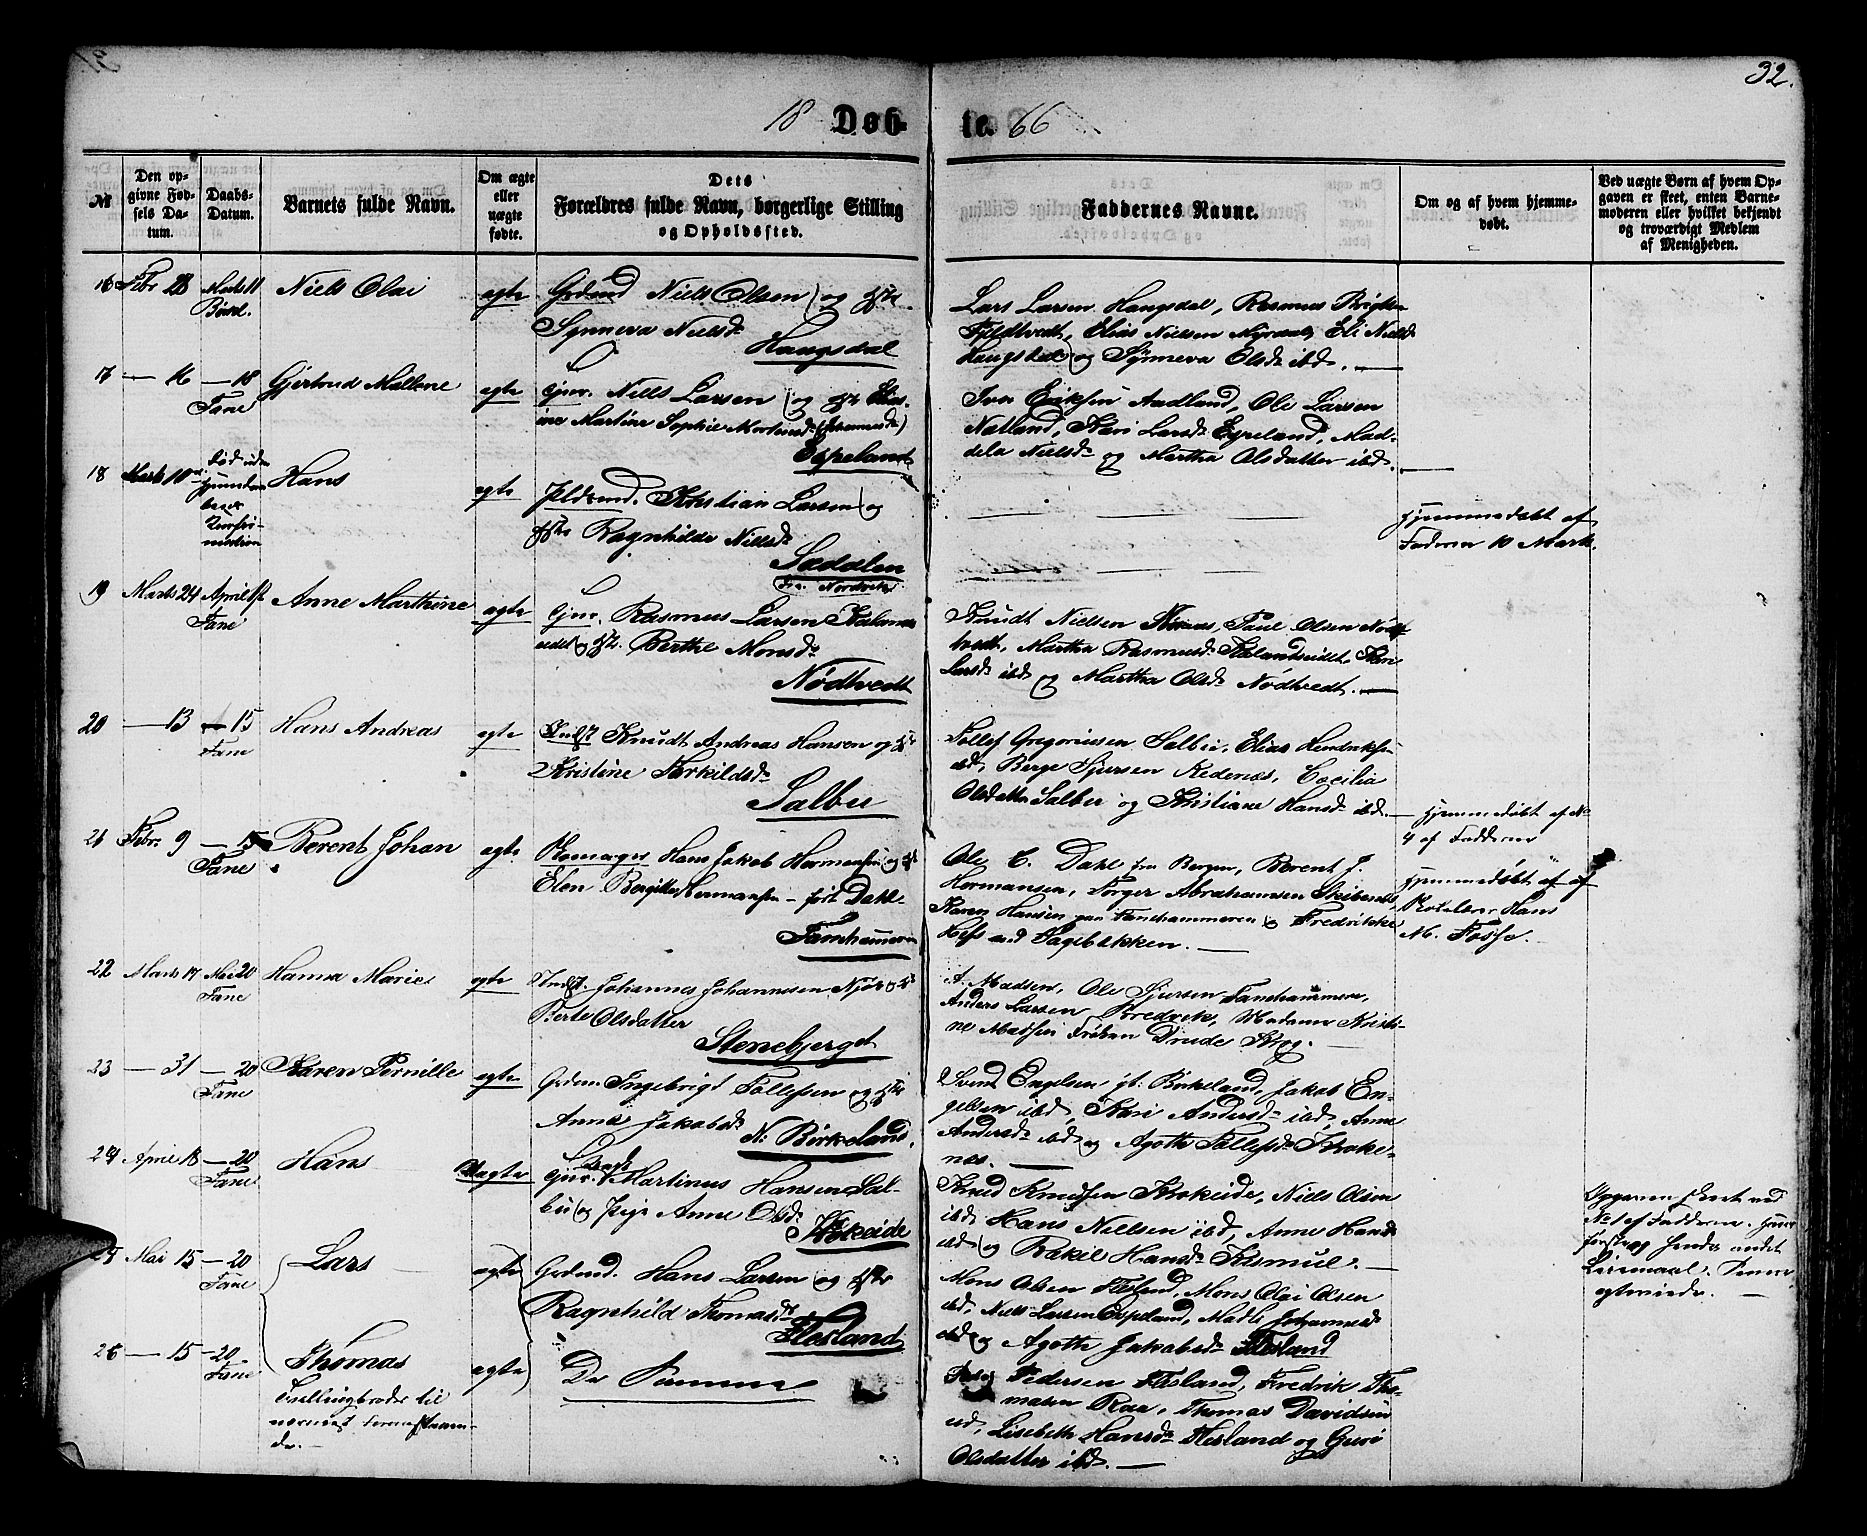 32.
18 Døb-
te. 66
No
Den op-
givne Fød-
sels Da-
tum.
Daabs-
Datum.
Barnets fulde Navn.
Om ægte
eller
uægte
fødte.
Dets
Forældres fulde Navn, borgerlige Stilling
og Opholdssted.
Faddernes Navne.
Om og af hvem hjemme-
døbt.
Ved uægte Børn af hvem Op-
gaven er skeet, enten Barne-
moderen eller hvilket bekjendt
og troværdigt Medlem
af Menigheden.
16 Febr 28
Niels Olai
ægte
Grdmd Niels Olsen og
Synneva Nielsd.
Haugsdal
Lars Larsen Haugsdal, Rasmus
Elias Nielsen Myrdal, Eli Nielsd
Haugsdal og Synneva Olsd. ibd.
17 — 16 — 18
Fane
Gjertrud Mallene
ægte
Gmr. Niels Larsen og
Martine Sophie
Espeland
Iver Eriksen Aadland, Ole Larsen
Natland, Kari Larsd. Espeland, Mad-
dela Nielsd. og Martha Olsdatter ibd.
18 Marts 10
Hans
ægte
Kristian Larsen og
Ragnhilde Nielsd.
Sædalen
hjemmedøbt af
Faderen 10 Mark.
19 Marts 24 April 1st
Fane
Anne Marthine
ægte
Gmr. Rasmus Larsen Kaland-
eidet og Berthe Monsd.
Nødtvedt
Knudt Nielsen Paul Olsen Nødt-
tvedt, Martha Rasmusd. Kalandseidet, Kari
Larsd. ibd. og Martha Olsd. Nødtvedt.
20 — 13 — 15
Fane
Hans Andreas
ægte
Knudt Andreas Hansen og
Kristine Torkildsd.
Salbu
Tollef Gregoriussen Salbu, Elias Hendriksen
ibd, Berge Sjursen Rødenæs, Cecilia
Olsdatter Salbu og Kristiane Hansd. ibd.
hjemmedøbt af No
4 af Fadderne
21 Febr. 9 — 15
Fane
Berent Johan
ægte
Hans Jakob Hermansen og
Elen Bergitte Hermansen — født Dahl
Fanehammeren
Ole C. Dahl fra Bergen, Berent J.
Hermansen, Torger Abrahamsen Skibenes,
Karen Hansen paa Fanehammeren og Fredrikke
Hess ved Sagebækken.
hjemmedøbt af
Hans
M. Fosse.
22 Marts 17 Mai 20
Fane
Hanna Marie
ægte
Indst. Johannes Johannessen Njøs og
Berte Olsdatter
Stenebjerget
A. Madsen, Ole Sjursen Fanehammeren,
Anders Larsen Madame Kristi-
ne Massen Frøken Drude Krog.
23 — 31 — 20
Fane
Karen Pernille
ægte
Grdm. Ingebrigt Tollefsen og
Anna Jakobsd.
N: Birkeland.
Svend Engelsen, Birkeland, Jakob En-
gelsen ibd, Kari Andersd. ibd, Anne
Andersd. ibd og Agothe Tollefsd. Kroke-
nes.
24 April 18 — 20
Fane
Hans
Uægte
Martinus Hansen Sal-
bu og Pige Anne Olsd.
Krokeide
Knud Knudsen Krokeide, Niels Olsen
ibd, Hans Nielsen ibd, Anne Hansd
ibd og Rakil Hansd. Kosmul.
Opgaven skeet ved
No 1 af Fadderne.
første og hendes andet
Leiermaal.
25 Mai 15 — 20
Fane
Lars
ægte
Grdmd. Hans Larsen og
Ragnhild Thomasd.
Flesland
Mons Olsen Flesland, Mons Olai Olsen
ibd, Niels Larsen Espeland, Madli Johannesd
ibd og Agothe Jakobsd. Flesland
26 — 15 — 20
Fane
Thomas
Tvillingbroder til
nærmest foranstaaen-
de.
ægte
De Samme
Pedersen Flesland, Fredrik Tho-
masen Raa, Thomas Davidsen
ibd, Lisebeth Hansd. Flesland og Guro
Olsdatter ibd.